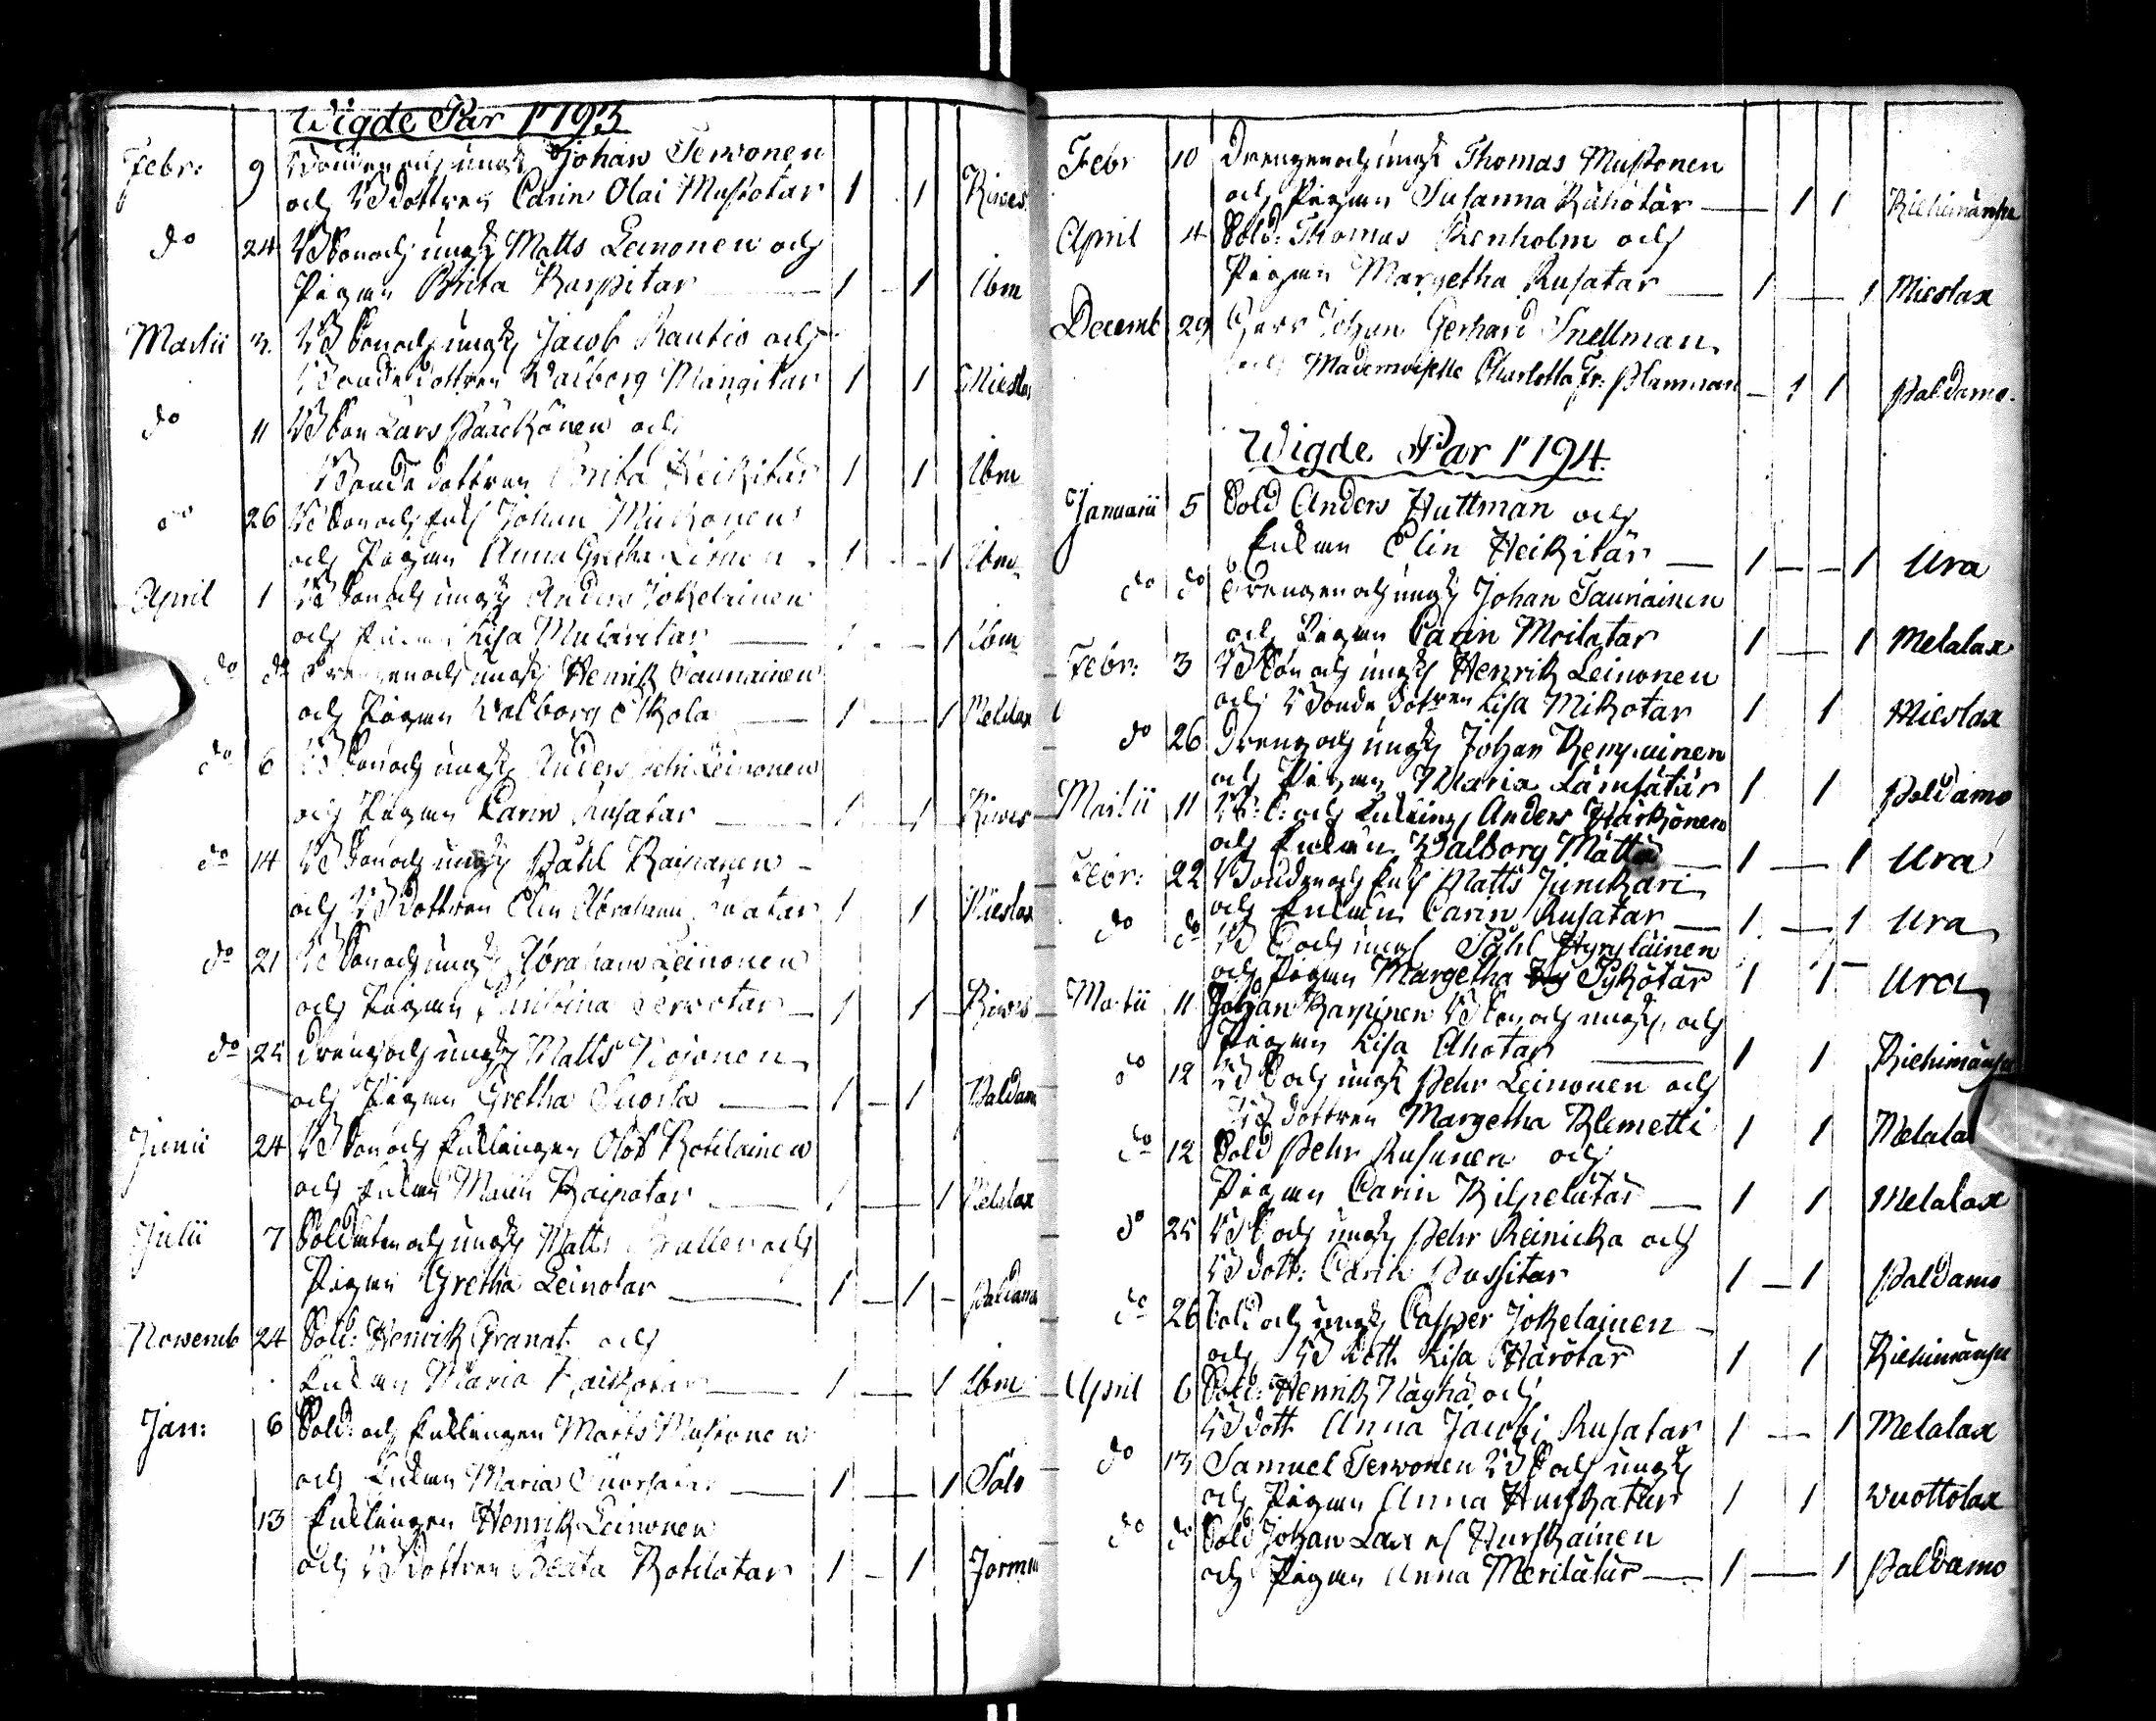 Wigde Par 1793
Febr: 9 Bonden och ungk Johan Terwonen
och B dottren Carin Olai Mustotar 1 1 Kiwes
do 24 B Son och ungk Matts Leinonen och
Pigan Brita Karpitar 1 1 Ibm
Martii 3. B Son och ungk Jacob Rautio och
Bonde dottren Walborg Mangitar 1 1 Mieslax
do 11 B Son Lars Pääckönen och
Bonde dottren Brita Heikitar 1 1 Ibm
do 26 B Son och Enkl Johan Mickonen
och Pigan Anna Gretha 1 1 Ibm
April 1 B Son och ungk Anders Jokelainen
och Pigan Lisa 1 1 Ibm
do do Drengen och ungk Henrik Tauriainen
och Pigan Walborg 1 1 Melalax
do 6 B Son och ungk Anders Leinonen
och Pigan Carin Rusatar 1 1 Kiwes
do 14 B Son och ungk Påhl Kaipanen
och B dottren Elin Abrahami 1 1 Mieslax
do 21 B Son och ungk Abraham Leinonen
och Pigan Terwotar 1 1 Kiwes
do 25 Dreng och ungk Matts
och Pigan Gretha Suorsa 1 1 Paldamo
Junii 24 B Son och Enklingen Olof Kotilainen
och Enkan Malin Kaipatar 1 1 Melalax
Julii 7 Soldaten och ungk Matts och
Pigan Gretha Leinotar 1 1 Paldamo
Nowemb 24 Sold: Henrik Granat och
Enkan Maria 1 1 Ibm
Jan: 6 Sold: och Enklingen Matts Mustonen
och Enkan Maria Suorsatar 1 1 Salo
13 Enklingen Henrik Leinonen
och B dottren Beata Kotilatar 1 1
Febr 10 Drengen och ungk Thomas Mustonen
och Pigan Susanna Rähötär 1 1 Riehimänsu
April 4 Sold: Thomas Renholm och
Pigan Margetha Rusatar 1 1 Mieslax
Decemb 29 Herr Johan Gerhard Snellman
och Mademoiselle Charlotta Fr: Planman 1 1 Paldamo.
Wigde Par 1794.
Januarii 5 Sold Anders Huttman och
Enkan Elin Heikitär 1 1 Ura
do do Drengen och ungk Johan Tauriainen
och Pigan Carin Moilatar 1 1 Melalax
Febr: 3 B Son och ungk Henrik Leinonen
och Bonde dottren Lisa Mikotar 1 1 Mieslax
do 26 Dreng och ungk Johan Kemppainen
och Pigan Maria Lämsätär 1 1 Paldamo
Martii 11 B: S: och Enkling Anders Härkönen
och Enkan Walborg Mättä 1 1 Ura
Febr: 22 Bonden och Enkl Matts Junckari
och Enkan Carin Rusatar 1 1 Ura
do do B S och ungk Påhl Hyryläinen
och Pigan Margetha Pykötär 1 1 Ura
Martii 11 Johan Karpinen B Son och ungk, och
Pigan Lisa Ahotar 1 1 Riehimänsu
do 12 B S och ungk Pehr Leinonen och
B dottren Margetha Klemetti 1 1 Melala
do 12 Sold Pehr Rusanen och
Pigan Carin Kilpelatär 1 1 Melalax
do 25 B S och ungk Pehr Reinicka och
B dott: Carin Pussitar 1 1 Paldamo
do 26 Sold och ungk Casper Jokelainen
och B dott. Lisa Harötär 1 1 Riehimänsu
April 6 Sold: Henrik Näghä och
B dott Anna Jacobi Rusatar 1 1 Melalax
do 13 Samuel Terwonen B S och ungk
och Pigan Anna Hurskatar 1 1 Wuottolax
do do Sold Johan Lax el Hurskainen
och Pigan Anna Merilätär 1 1 Paldamo